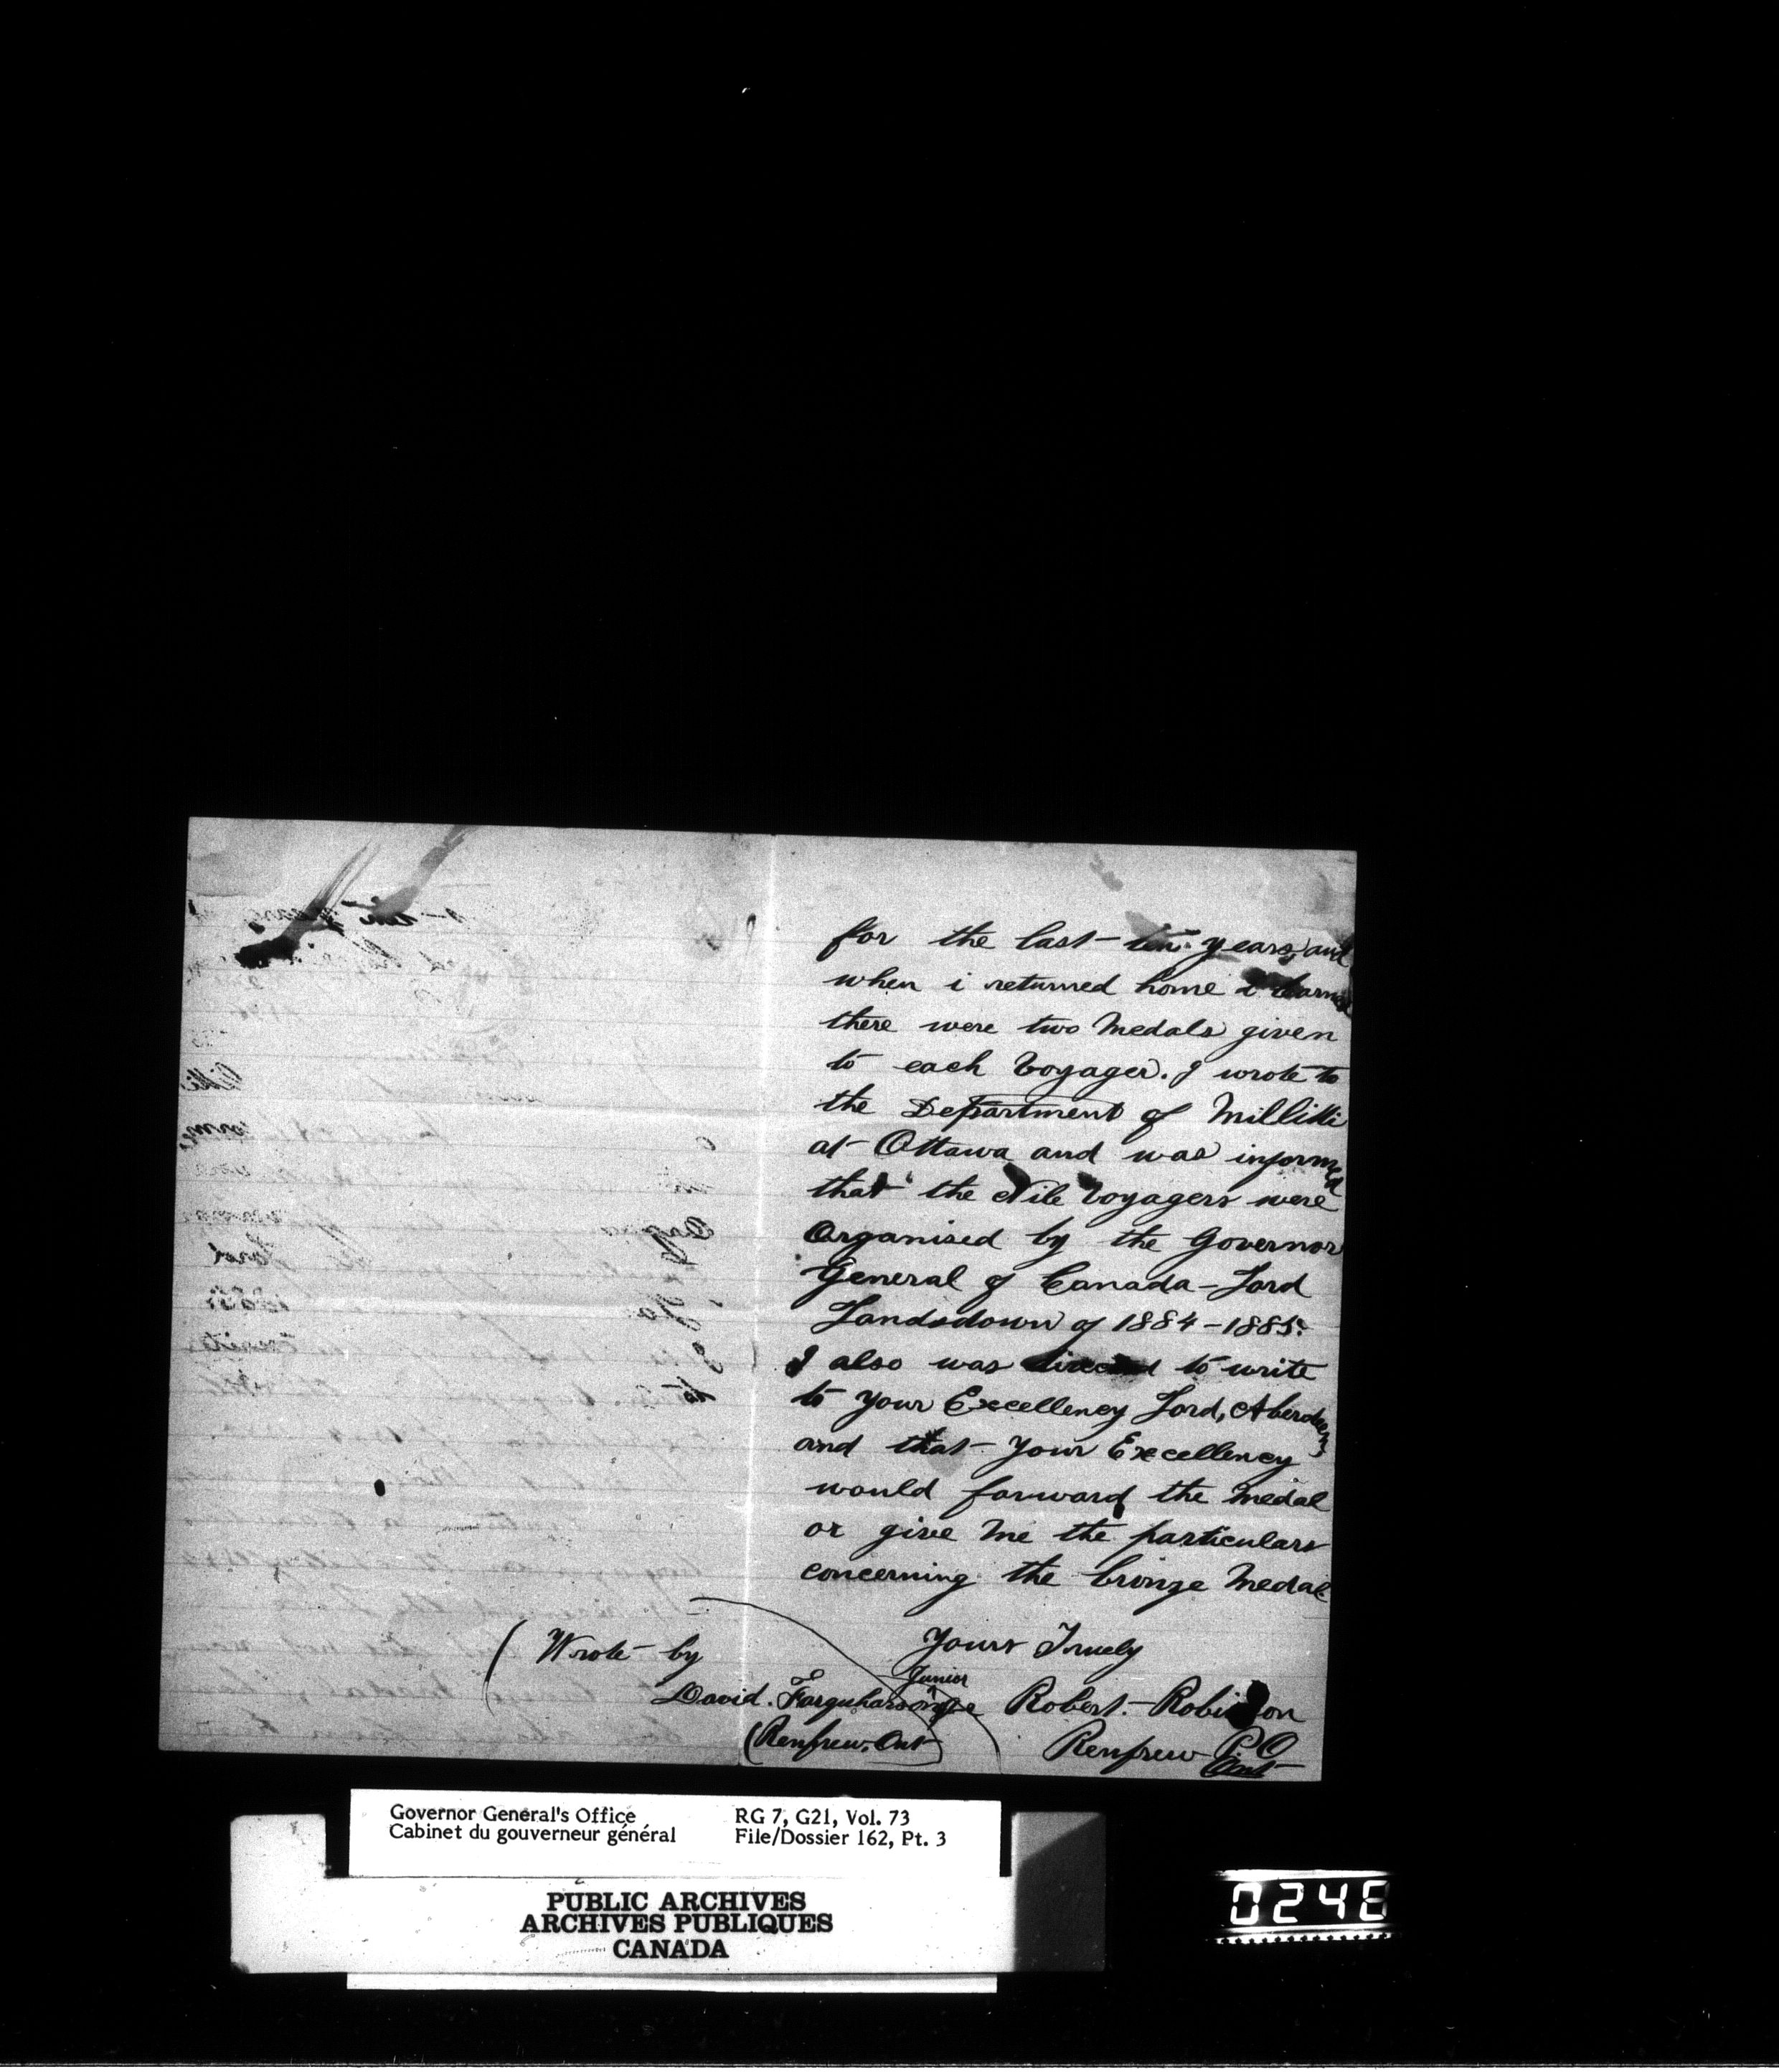 for the last ten years, and
when i returned home i learned
there were two Medals given
to each Voyager. I wrote to
the Department of Millitti
at Ottawa and was informed
that the Nile Voyagers were
Organised by the Governor
General of Canada - Lord
Landsdown of 1884 - 1885.
I also was directed to write
to your Excellency Lord, Aberdeen,
and that your Excellency
would forward the Medal
or give Me the particulars
concerning the bronze Medal
Yours Truely
Robert. Robinson
Renfrew P O
Ont
(Wrote by
David. Farquharson Junior
(Renfrew. Ont)
Governor General's Office
Cabinet du gouverneur général
RG 7, G21, Vol. 73
File/Dossier 162, Pt. 3
PUBLIC ARCHIVES
ARCHIVES PUBLIQUES
CANADA